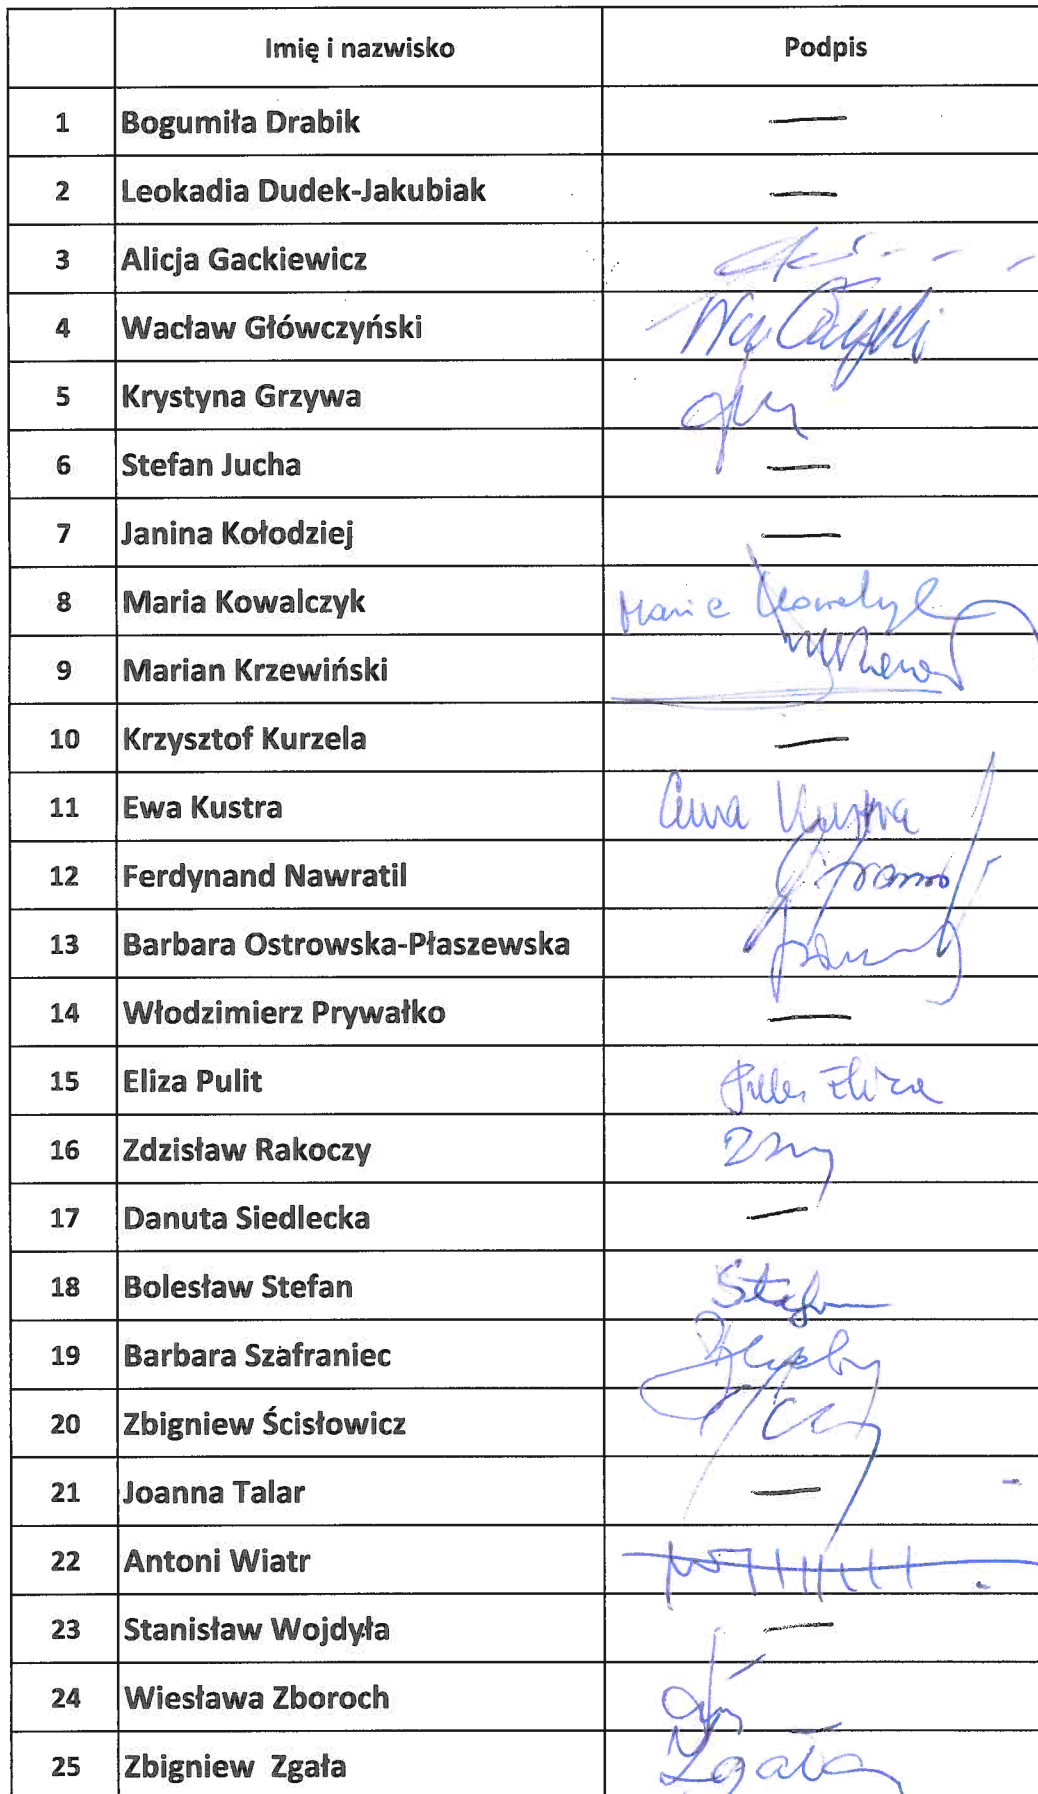 Imię i nazwisko Podpis
1 Bogumiła Drabik —
2 Leokadia Dudek-Jakubiak —
3 Alicja Gackiewicz
4 Wacław Główczyński
5 Krystyna Grzywa
6 Stefan Jucha —
7 Janina Kołodziej —
8 Maria Kowalczyk Maria Kowalczyk
9 Marian Krzewiński
10 Krzysztof Kurzela —
11 Ewa Kustra Ewa Kustra
12 Ferdynand Nawratil
13 Barbara Ostrowska-Płaszewska
14 Włodzimierz Prywałko —
15 Eliza Pulit Pulit Eliza
16 Zdzisław Rakoczy
17 Danuta Siedlecka —
18 Bolesław Stefan Stefan
19 Barbara Szafraniec
20 Zbigniew Ścisłowicz
21 Joanna Talar —
22 Antoni Wiatr
23 Stanisław Wojdyła —
24 Wiesława Zboroch
25 Zbigniew Zgała Zgała